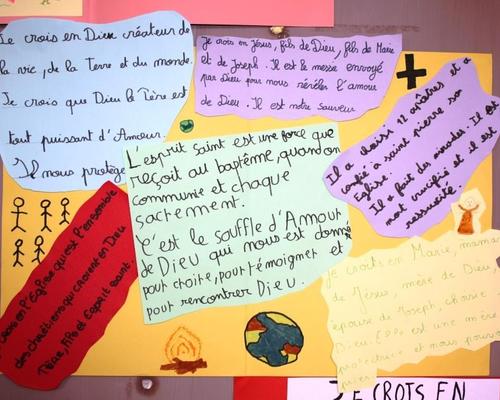 Je crois en Dieu créateur de
la vie, de la Terre et du monde.
Je crois que Dieu le Père est
tout puissant d'Amour.
Il nous protège
Je crois en Jésus, fils de Dieu, fils de Marie
et de Joseph. Il est le messie envoyé
par Dieu pour nous révéler l'amour
de Dieu. Il est notre sauveur
Il a choisi 12 apôtres et a
confié à saint pierre son
Eglise.
Il a fait des miracles. Il est
mort crucifié et il est
ressuscité.
L'esprit saint est une force que
reçoit au baptême, quand on
communie et chaque
sacrement.
C'est le souffle d'Amour,
de Dieu qui nous est donné
pour choite, pour témoignet et
pout rencontrer Dieu.
crois en l'Eglise qui est l'ensemble
des chrétiens qui croient en Dieu
Père, Fils et Esprit Saint.
Je crois en Marie, maman
de Jésus, mère de Dieu,
épouse de Joseph, choisie
Dieu. Elle est une mère
protectrice et nous pouvons
prier
JE CROTS EN